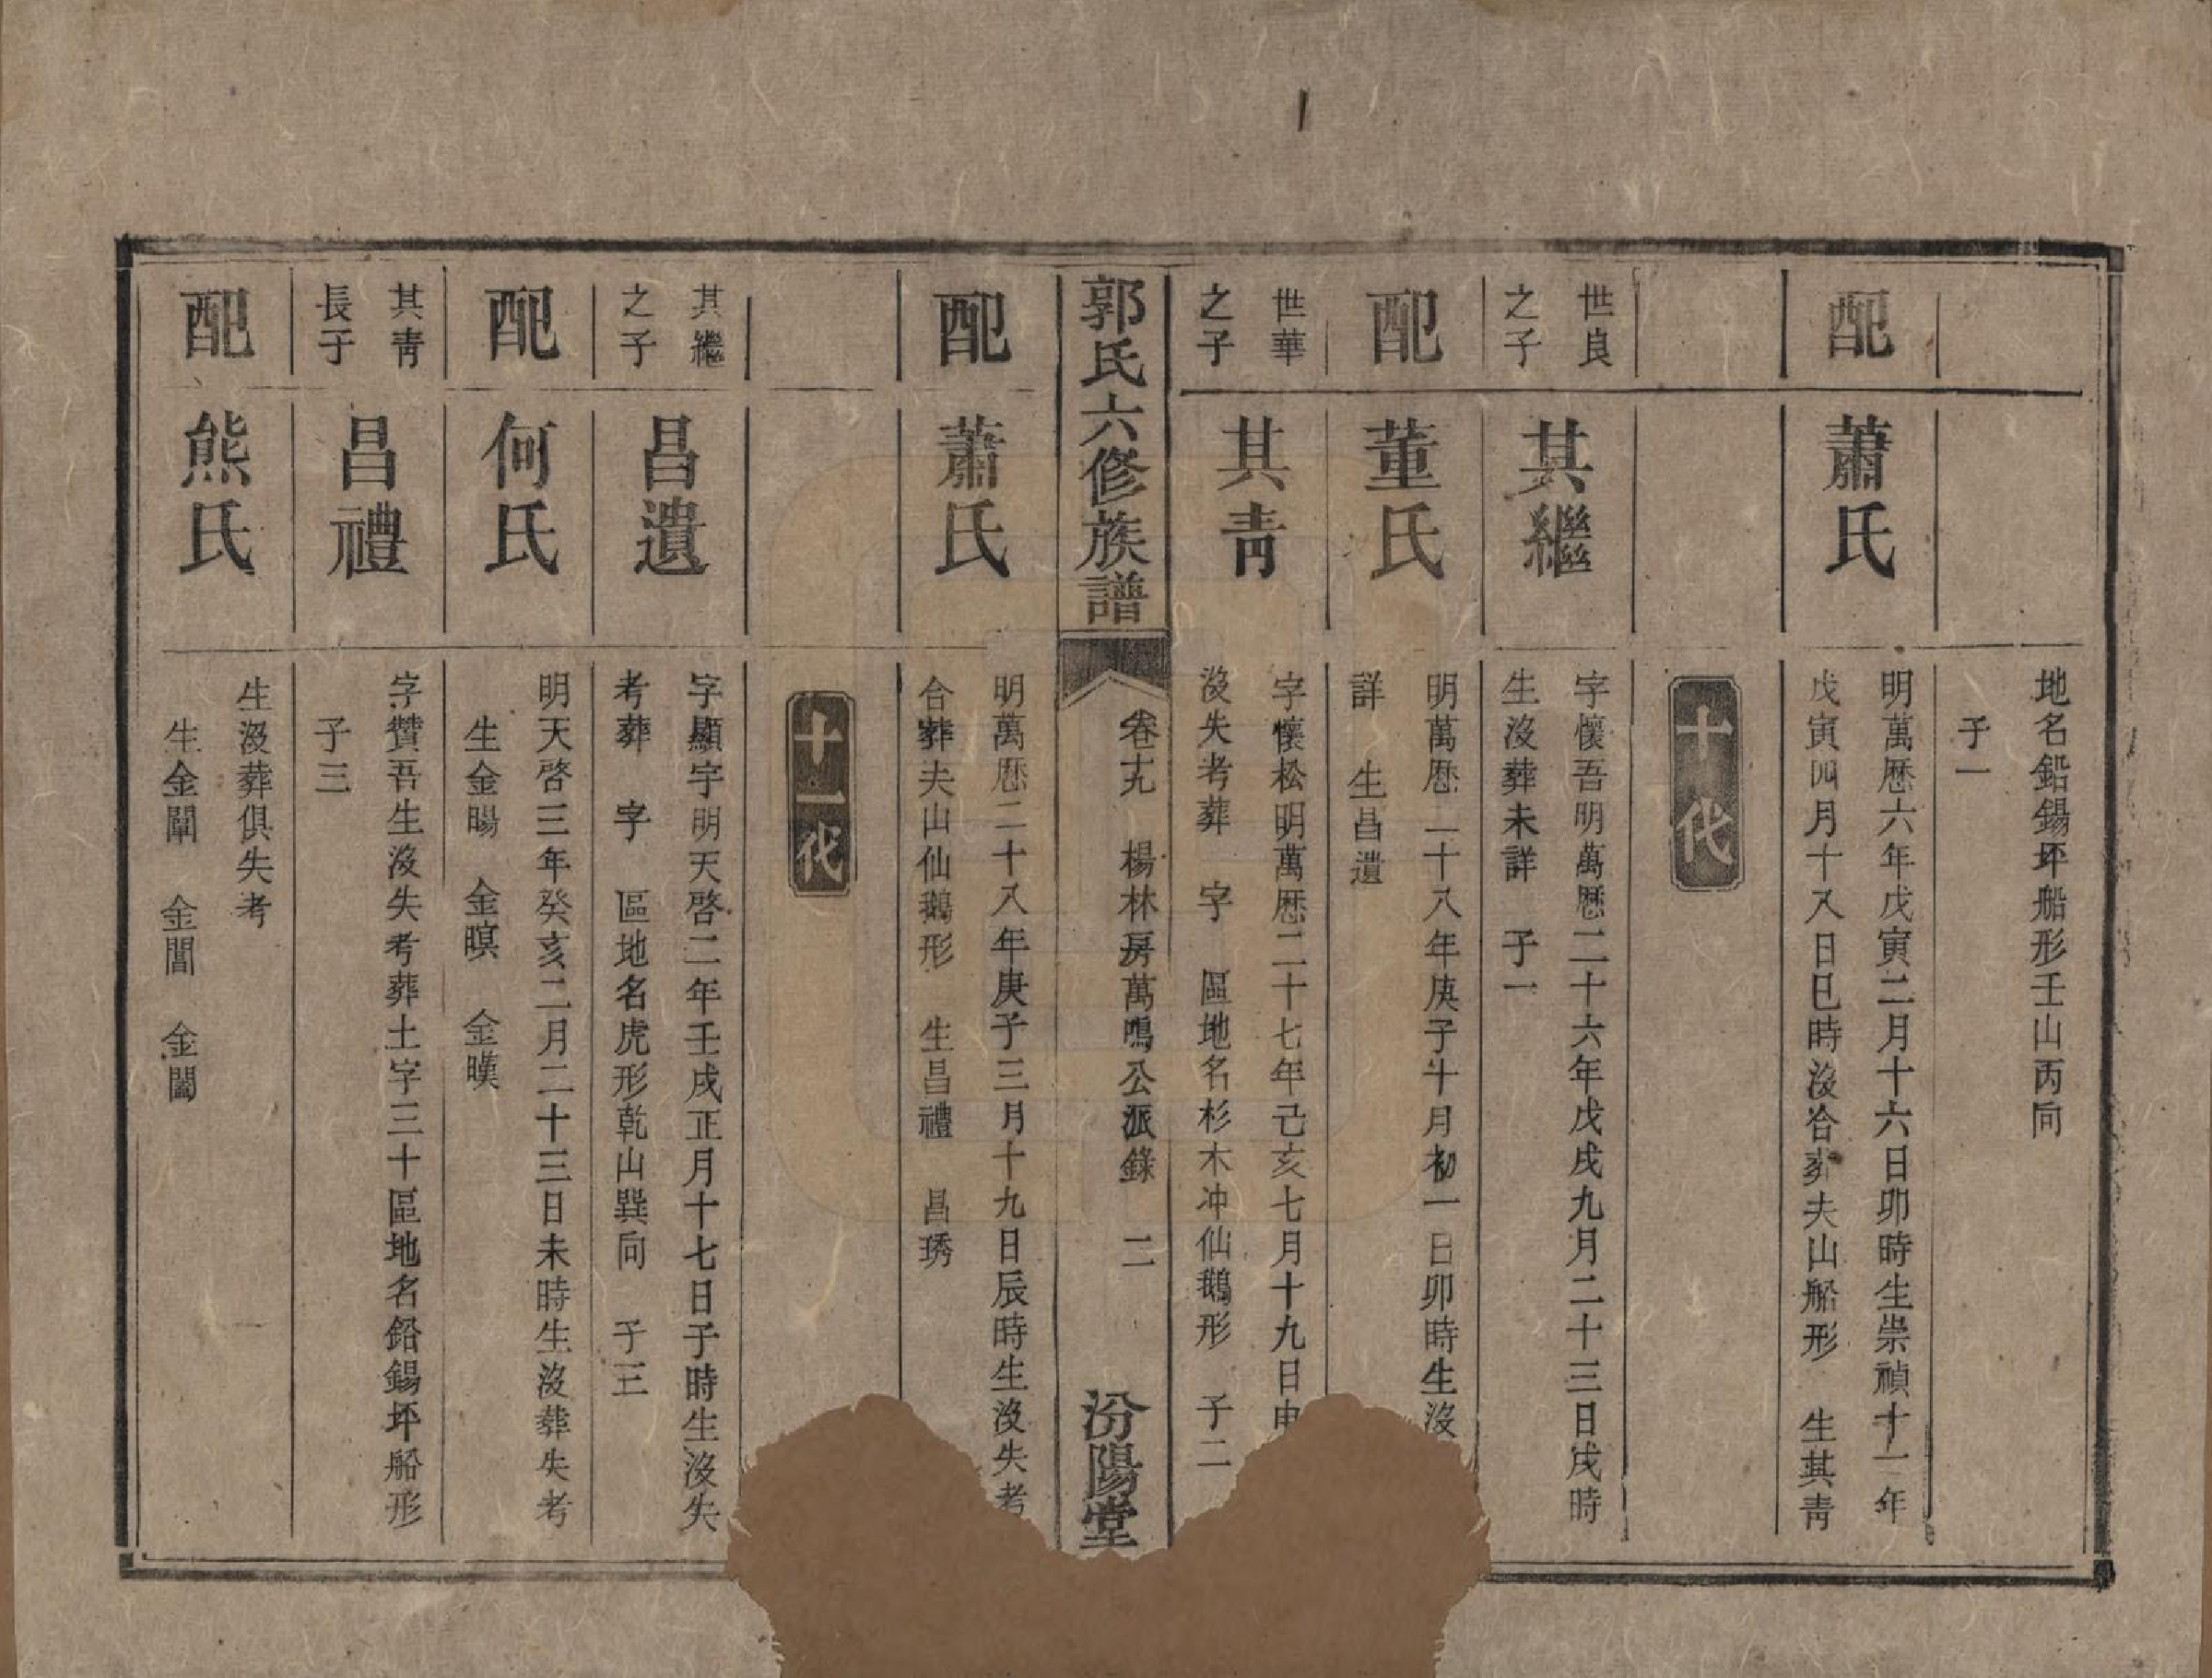 地名鉛錫坪船形壬山丙向
子一
配
蕭氏
明萬歷六年戊寅二月十六日卯時生崇禎十一年
戊寅四月十八日巳時沒合葬夫山船形　生其靑
十代
世良
之子
其繼
字懷吾明萬歷二十六年戊戌九月二十三日戌時
生沒葬未詳　子一
配
董氏
明萬歷二十八年庚子十月初一日卯時生沒
詳　生昌遺
世華
之子
其靑
字懷松明萬歷二十七年己亥七月十九日申
沒失考葬　字　區地名杉木冲仙鵝形　子二
郭氏六修族譜
卷十九　楊林房萬鳴公派錄　二
汾陽堂
配
蕭氏
明萬歷二十八年庚子三月十九日辰時生沒失考
合葬夫山仙鵝形　生昌禮　昌琇
十一代
其繼
之子
昌遺
字顯宇明天啓二年壬戌正月十七日子時生沒失
考葬　字　區地名虎形乾山巽向　子三
配
何氏
明天啓三年癸亥二月二十三日未時生沒葬失考
生金暘　金暝　金暵
其靑
長子
昌禮
字贊吾生沒失考葬土字三十區地名鉛錫坪船形
子三
配
熊氏
生沒葬俱失考
生金闡　金閶　金闔